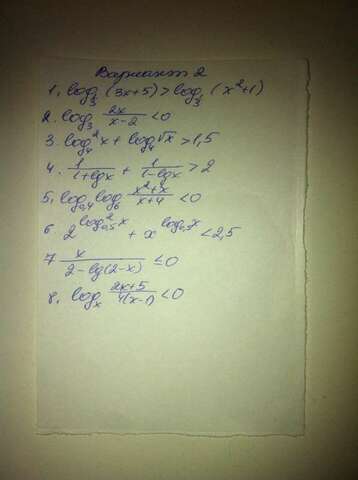 Вариант 2
1. log₃ (3x+5) > log₃ (x²+1)
2. log₃ 2x/(x-2) < 0
3. log₄² x + log₄ √x > 1,5
4. 1/(1+lgx) + 1/(1-lgx) > 2
5. log₀,₄ log₆ (x²+x)/(x+4) < 0
6. 2^(log²₀,₅ x) + x^(log₀,₅ x) < 2,5
7 x/(2-lg(2-x)) ≤ 0
8. logₓ (2x+5)/(4(x-1)) < 0